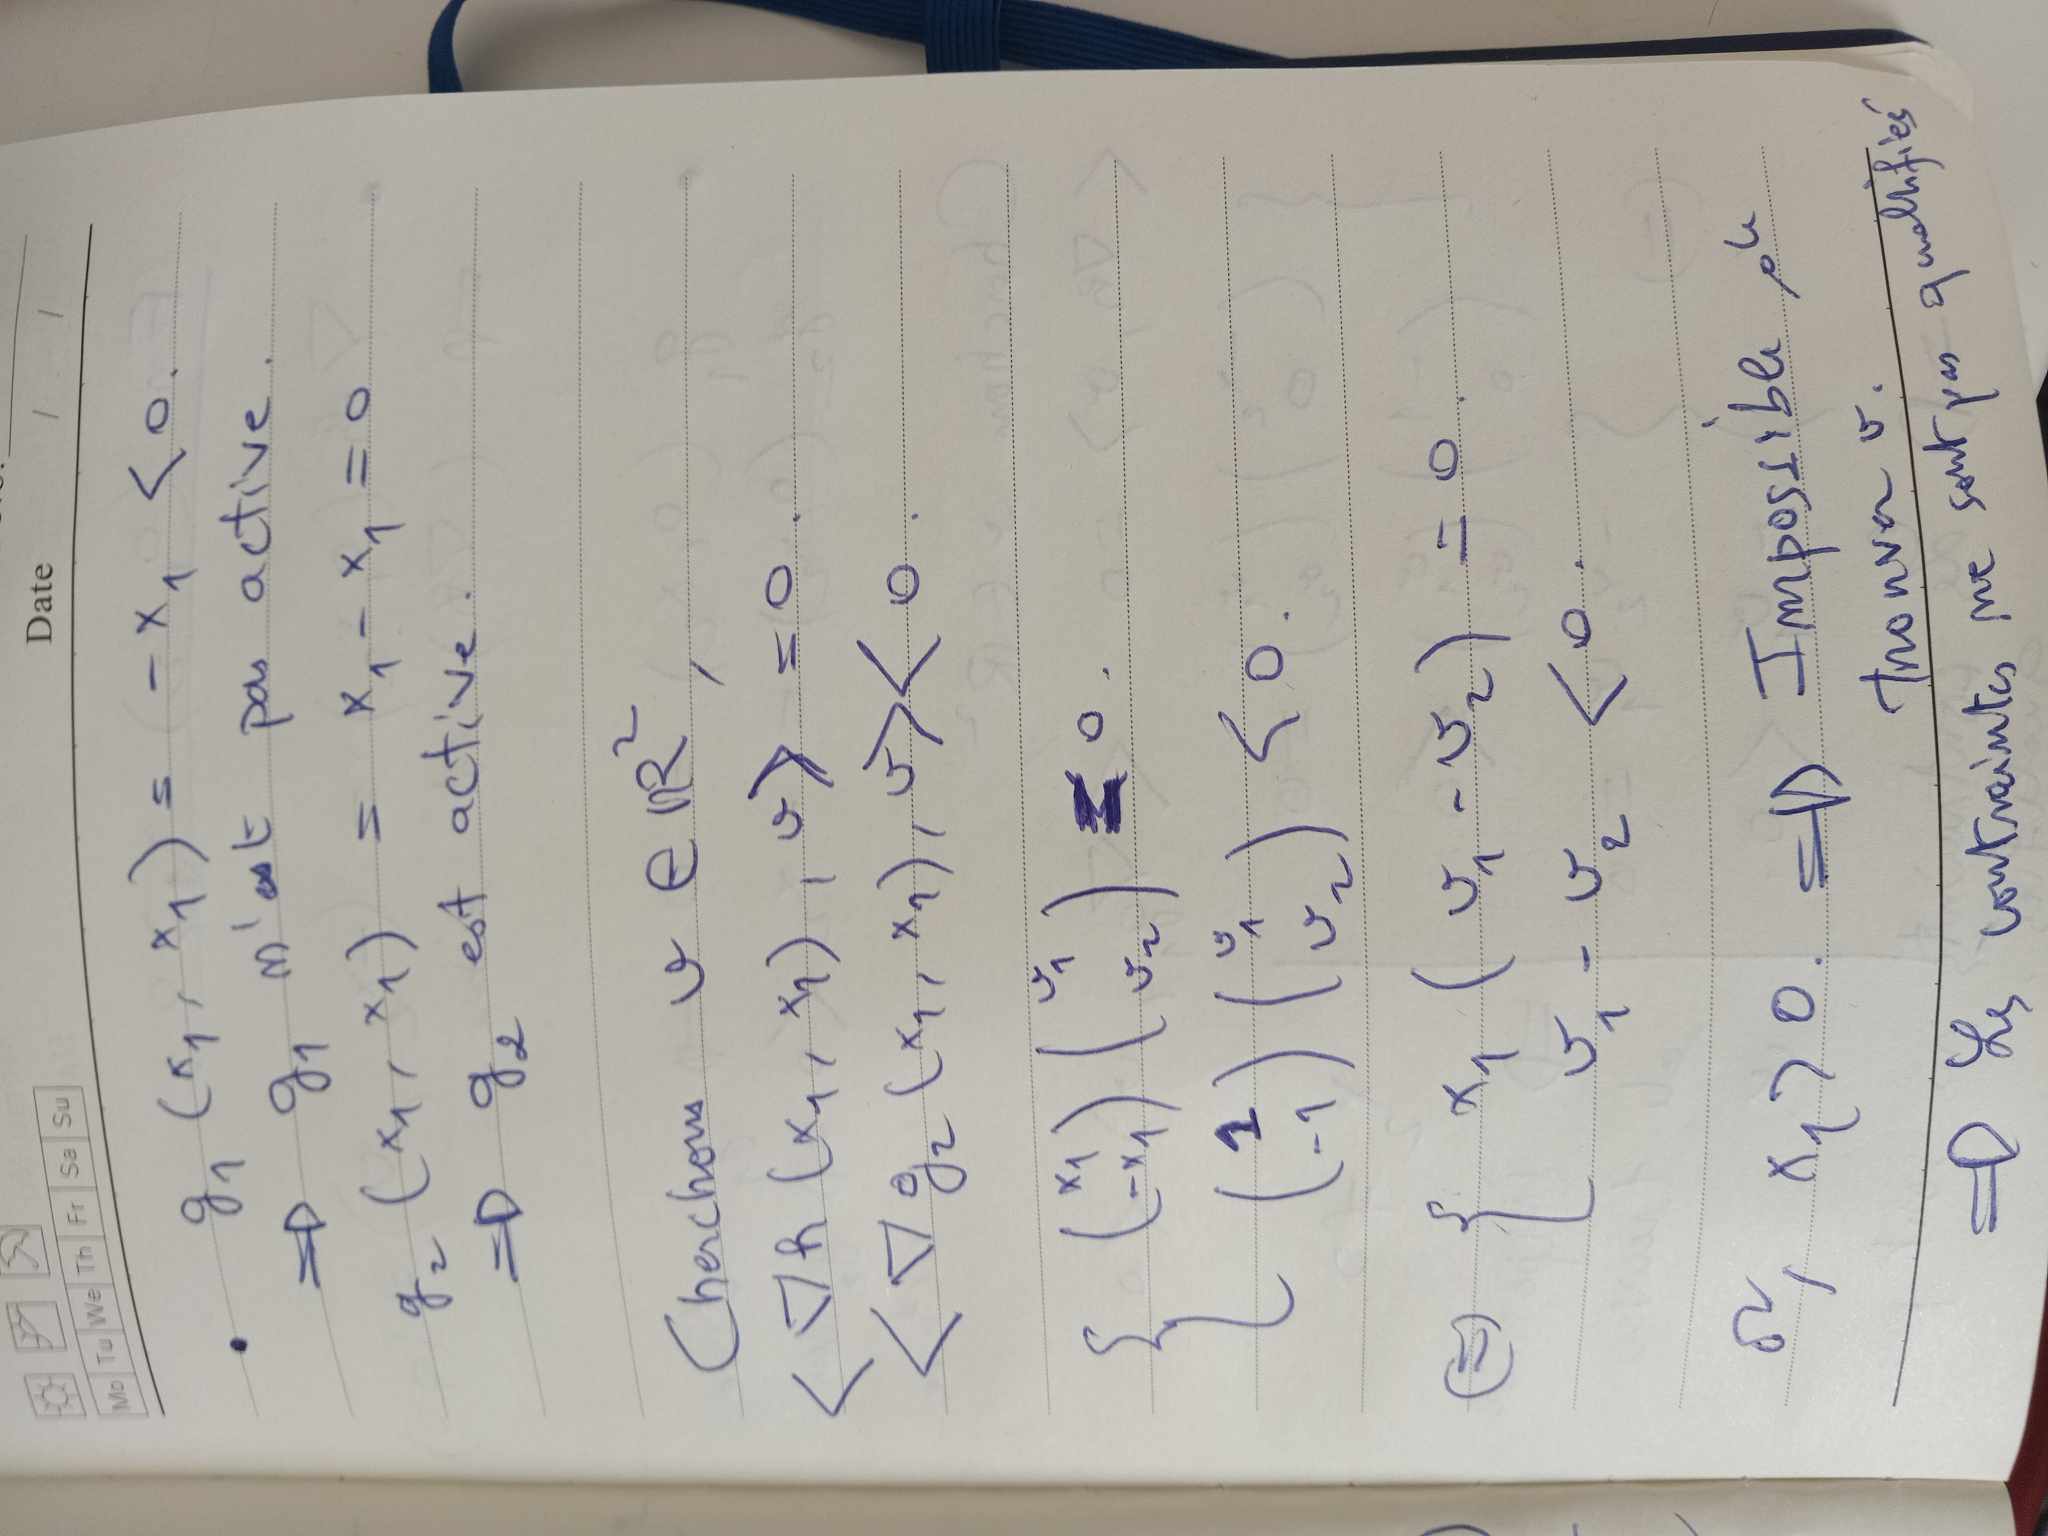 Date / /
Mo Tu We Th Fr Sa Su
• g₁ (x₁, x₁) = -x₁ < 0.
⇒ g₁ n'est pas active.
g₂ (x₁, x₁) = x₁ - x₁ = 0
⇒ g₂ est active.
Cherchons v ∈ ℝ²,
< ∇h (x₁, x₁), v> = 0.
< ∇g₂ (x₁, x₁), v> < 0.
{ (x₁ -x₁) (v₁ v₂) = 0.
(1 -1) (v₁ v₂) < 0.
(=) { x₁ (v₁ - v₂) = 0.
v₁ - v₂ < 0.
Or, x₁ > 0. ⇒ Impossible de
trouver v.
⇒ Les contraintes ne sont pas qualifiés